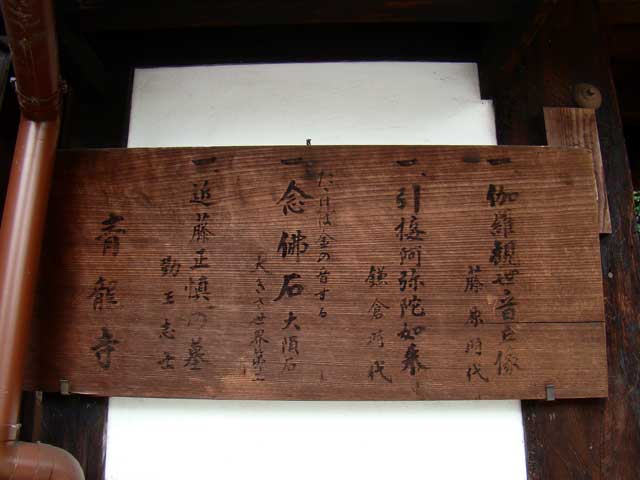 一、伽羅観世音石像
藤原時代
一、引接阿弥陀如来
鎌倉時代
たたけば金の音する
一、念佛石大隕石
大きさ世界第二
一、近藤正慎の墓
勤王志士
青龍寺